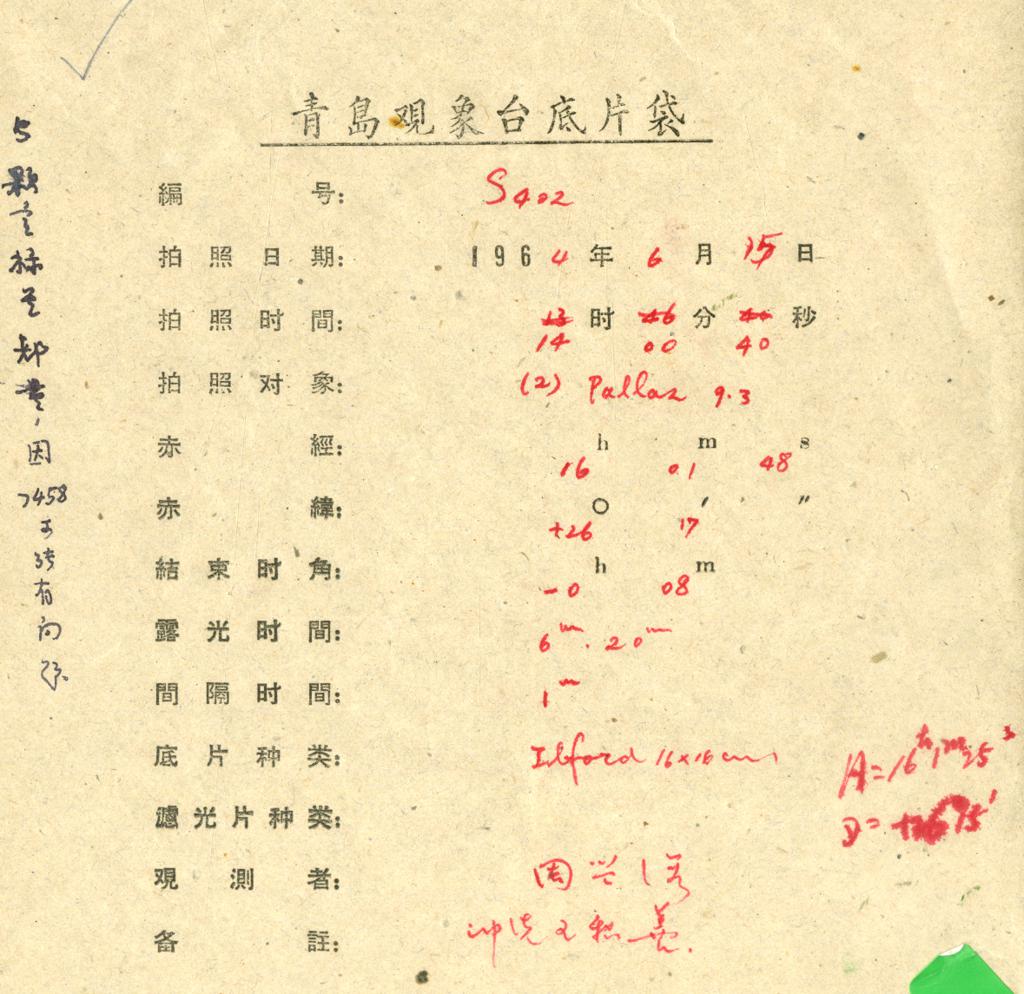 青島观象台底片袋
編号: S402
拍照日期: 1964年6月15日
拍照时間: 13时46分44秒
14 00 40
拍照对象: (2) Pallas 9.3
赤經: h m s
16 01 48
赤緯: ○ ′ ″
+26 17
結束时角: h m
-0 08
露光时間: 6m. 20m
間隔时間: 1m
底片种类: Ilford 16×16cm
濾光片种类:
观測者: 周兴
备註: 冲洗王
A=16h1m25s
D= 15′
5
颗
定
标
星
却
因
7458
有
问